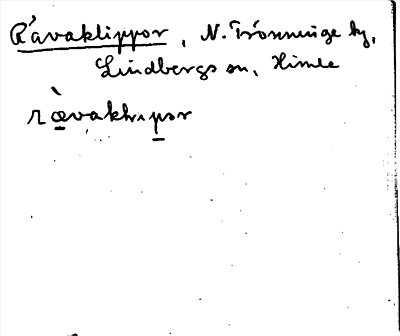 Rávaklippor, N. Trönninge by,
Lindbergs sn, Himle
rævaklıpor